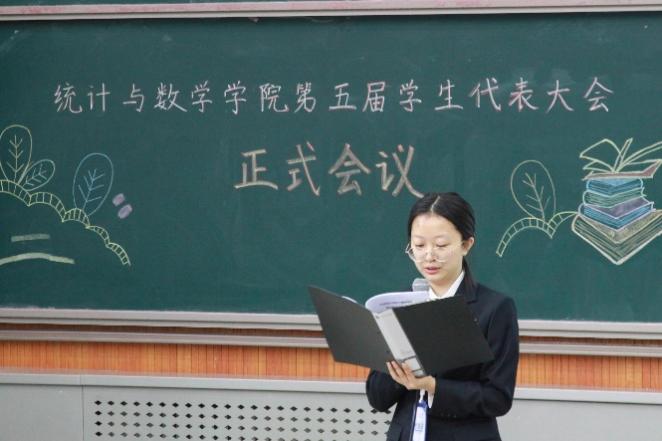 统计与数学学院第五届学生代表大会
正式会议